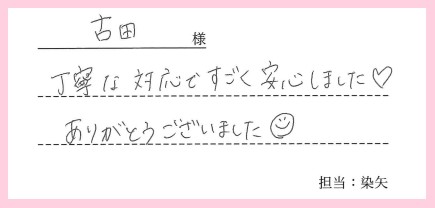 古田 様
丁寧な対応ですごく安心しました♡
ありがとうございました☺
担当：染矢